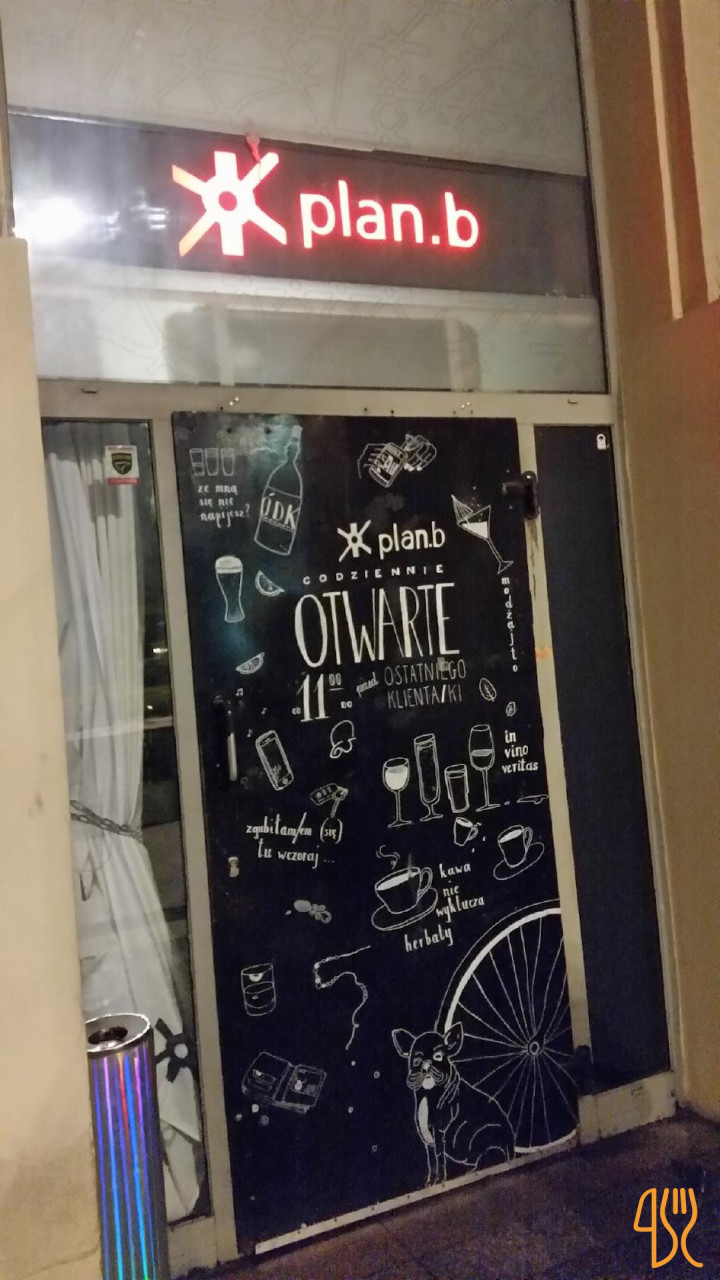 plan.b
ze mną
się nie
napijesz?
ÚDK
plan.b
CODZIENNIE
OTWARTE
OD 11 00 DO ponad OSTATNIEGO
KLIENTA/KI
modżajto
in
vino
veritas
zgubiłam/em (się)
tu wczoraj ...
kawa
nie
wyklucza
herbaty